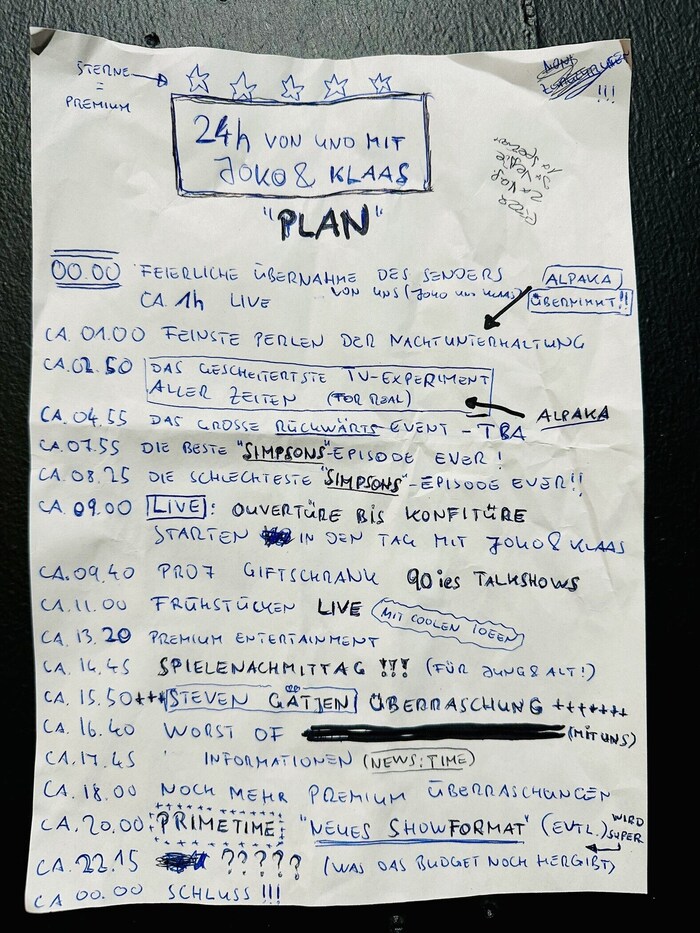 STERNE
=
PREMIUM
!!!
24h VON UND MIT
JOKO & KLAAS
"PLAN"
00.00 FEIERLICHE ÜBERNAHME DES SENDERS
VON UNS (JOKO UND KLAAS)
CA. 1h LIVE
ALPAKA
ÜBERNIMMT!!
CA. 01.00 FEINSTE PERLEN DER NACHTUNTERHALTUNG
CA. 02.50 DAS GESCHEITERTSTE TV-EXPERIMENT
ALLER ZEITEN (FOR REAL)
ALPAKA
CA. 04.55 DAS GROSSE RÜCKWÄRTS-EVENT - TBA
CA. 07.55 DIE BESTE "SIMPSONS"-EPISODE EVER!
CA. 08.25 DIE SCHLECHTESTE "SIMPSONS"-EPISODE EVER!!
CA. 09.00 LIVE: OUVERTÜRE BIS KONFITÜRE
STARTEN IN DEN TAG MIT JOKO & KLAAS
CA. 09.40 PRO7 GIFTSCHRANK 90ies TALKSHOWS
CA. 11.00 FRÜHSTÜCKEN LIVE (MIT COOLEN IDEEN)
CA. 13.20 PREMIUM ENTERTAINMENT
CA. 14.45 SPIELENACHMITTAG !!! (FÜR JUNG & ALT!)
CA. 15.50 +++ STEVEN GÄTJEN ÜBERRASCHUNG +++++++
CA. 16.40 WORST OF (MIT UNS)
CA. 17.45 INFORMATIONEN (NEWS:TIME)
CA. 18.00 NOCH MEHR PREMIUM ÜBERRASCHUNGEN
CA. 20.00: PRIMETIME "NEUES SHOWFORMAT" (EVTL.) WIRD
SUPER
CA. 22.15 ????? (WAS DAS BUDGET NOCH HERGIBT)
CA 00.00 SCHLUSS !!!